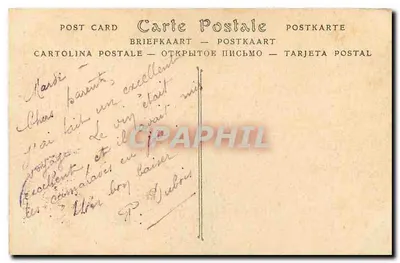 POST CARD Carte Postale POSTKARTE
BRIEFKAART — POSTKAART
CARTOLINA POSTALE — ОТКРЫТОЕ ПИСЬМО — TARJETA POSTAL
Mardi
Chers parents,
J'ai fait un excellent
voyage. Le vin était
excellent et il avait mis
les camarades en
Un bon baiser
P. Dubois
CPAPHIL